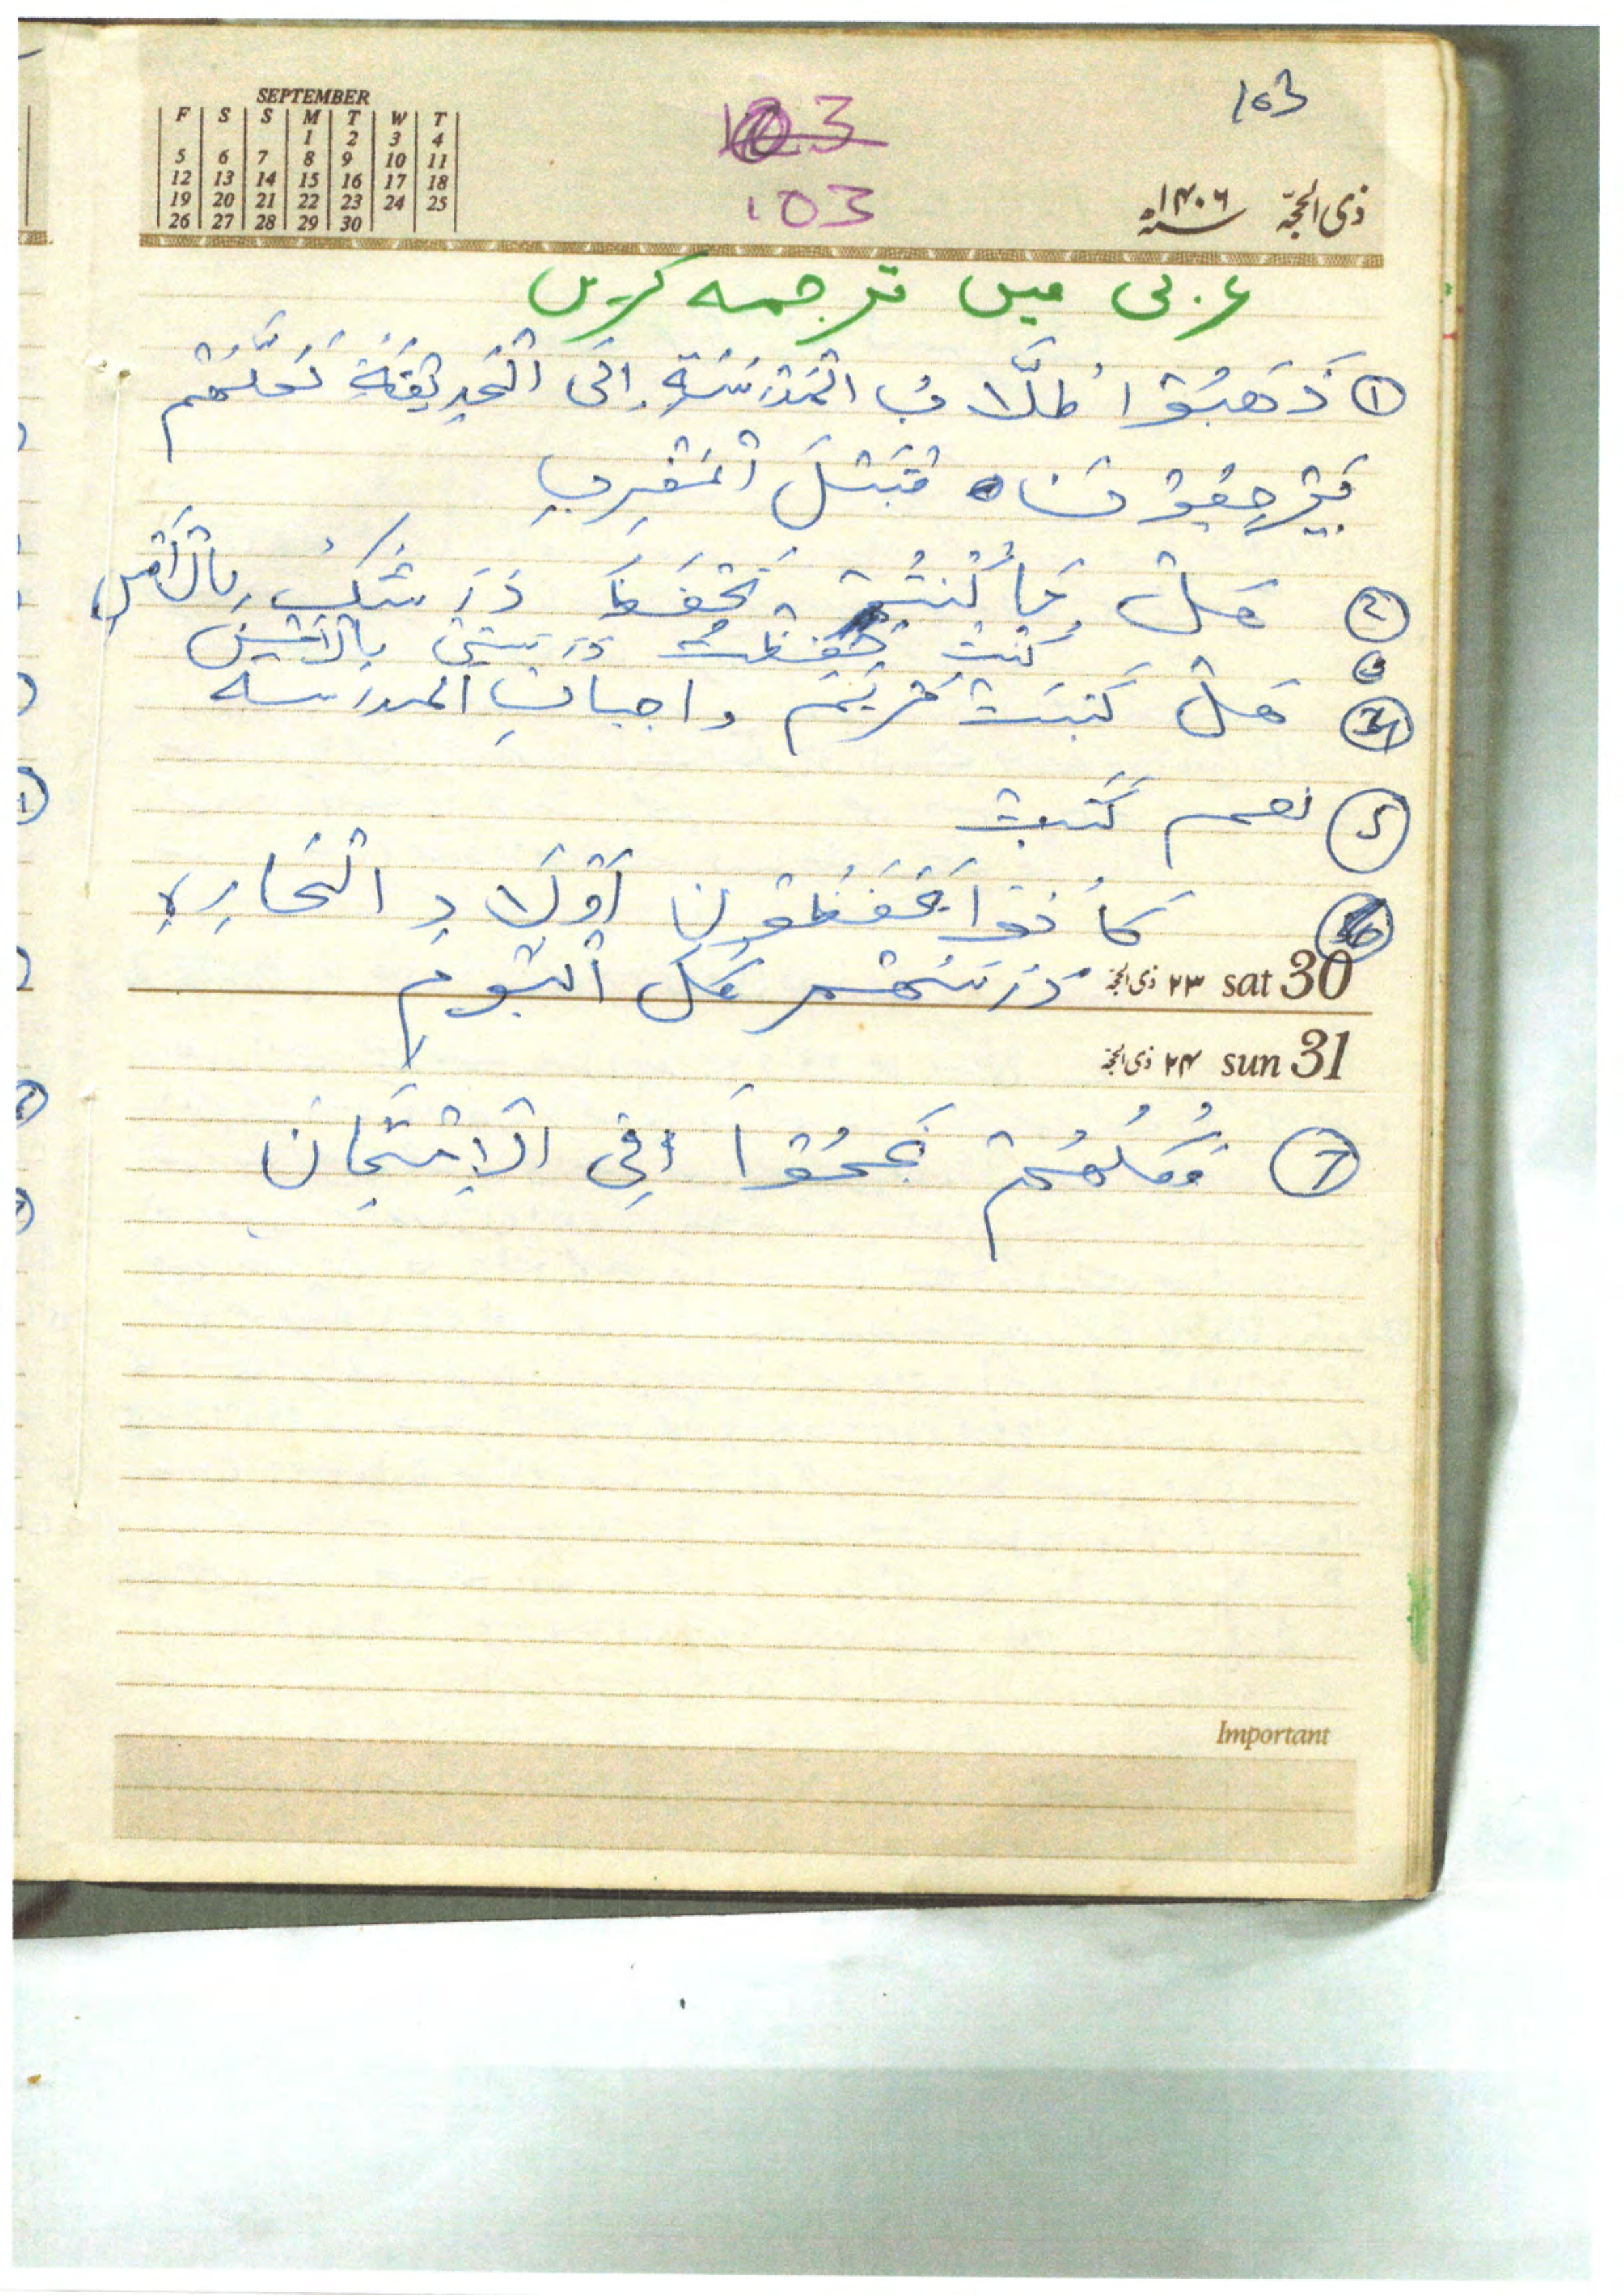 SEPTEMBER
F S S M T W T
1 2 3 4
5 6 7 8 9 10 11
12 13 14 15 16 17 18
19 20 21 22 23 24 25
26 27 28 29 30
103
103
103
ذی الحجّہ ۱۴۰۶
عربی میں ترجمہ کریں
① ذَهَبُوْا طُلَّابُ الْمَدْرَسَةِ إِلَى الْحَدِيْقَةِ لَعَلَّهُم
يَرْجِعُوْنَ قَبْلَ الْمَغْرِبِ
② هَلْ مَا كُنْتُمْ تَحْفَظَ دَرْسَكَ بِالْأَمْسِ
③ كُنْتُ حَفِظْتُ دَرْسِي بِالْأَمْسِ
④ هَلْ كَتَبَتْ مَرْيَمُ واجباتِ المدرسه
5 نعم كَتَبت
6 كَانُوْا يَحْفَظُوْنَ أَوْلَادِ الْحَارِةِ
دَرْسَهُمْ كل الْيَوم
sat 30 ۲۳ ذی الحجّہ
sun 31 ۲۴ ذی الحجّہ
7 كُلُّهُمْ نَجَحُوْا فِي الْإِمْتِحَان
Important